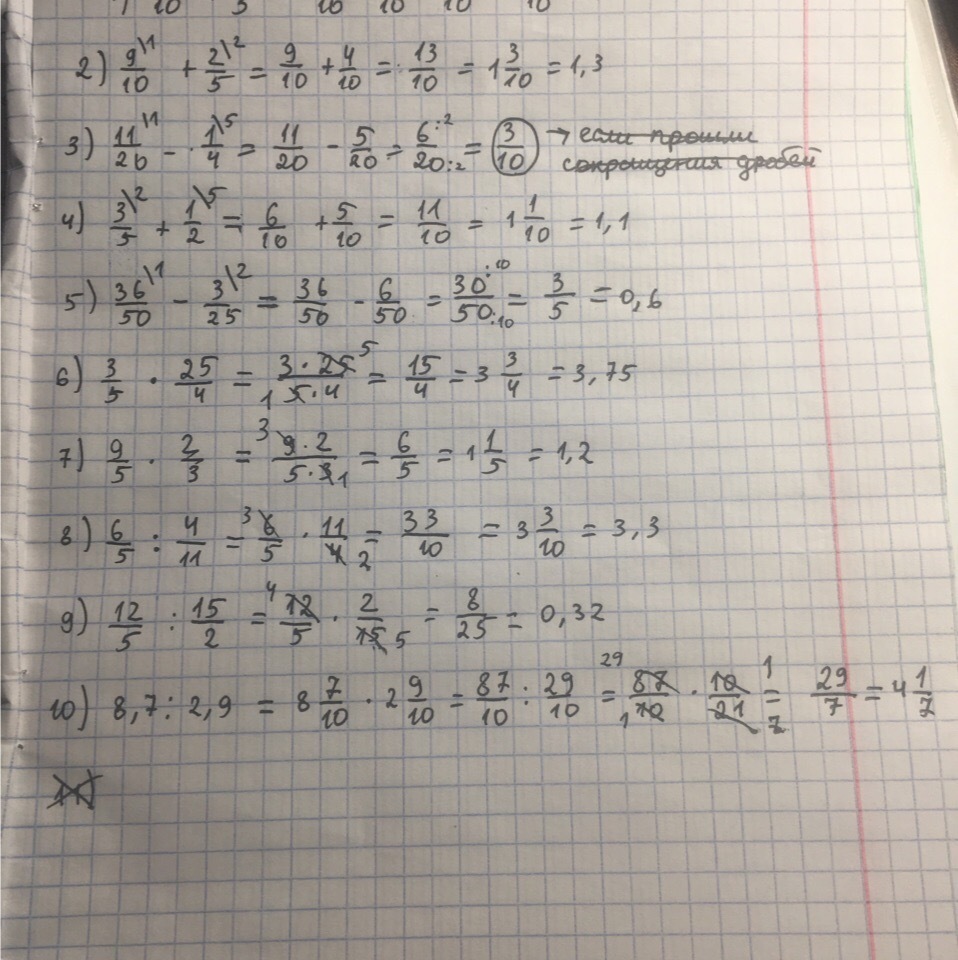 10 3 10 10 10 10
2) 9\1/10 + 2\2/5 = 9/10 + 4/10 = 13/10 = 1 3/10 = 1,3
3) 11\1/20 - 1\5/4 = 11/20 - 5/20 = 6:2/20:2 = 3/10 → если прошли
сокращения дробей
4) 3\2/5 + 1\5/2 = 6/10 + 5/10 = 11/10 = 1 1/10 = 1,1
5) 36\1/50 - 3\2/25 = 36/50 - 6/50 = 30:10/50:10 = 3/5 = 0,6
6) 3/5 · 25/4 = 3 · 25 5/1 5 · 4 = 15/4 = 3 3/4 = 3,75
7) 9/5 · 2/3 = 3 9 · 2/5 · 3 1 = 6/5 = 1 1/5 = 1,2
8) 6/5 : 4/11 = 3 6/5 · 11/4 2 = 33/10 = 3 3/10 = 3,3
9) 12/5 : 15/2 = 4 12/5 · 2/15 5 = 8/25 = 0,32
10) 8,7 : 2,9 = 8 7/10 · 2 9/10 = 87/10 : 29/10 = 29 87/1 10 · 10 1/21 7 = 29/7 = 4 1/7